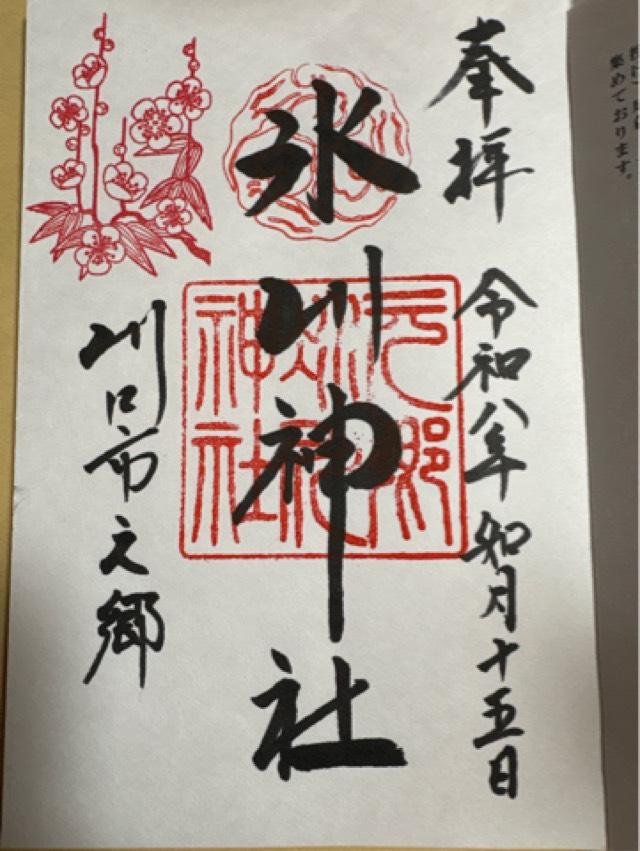 集めております。
奉拝
令和八年如月十五日
氷川神社
元郷氷川神社
川口市元郷